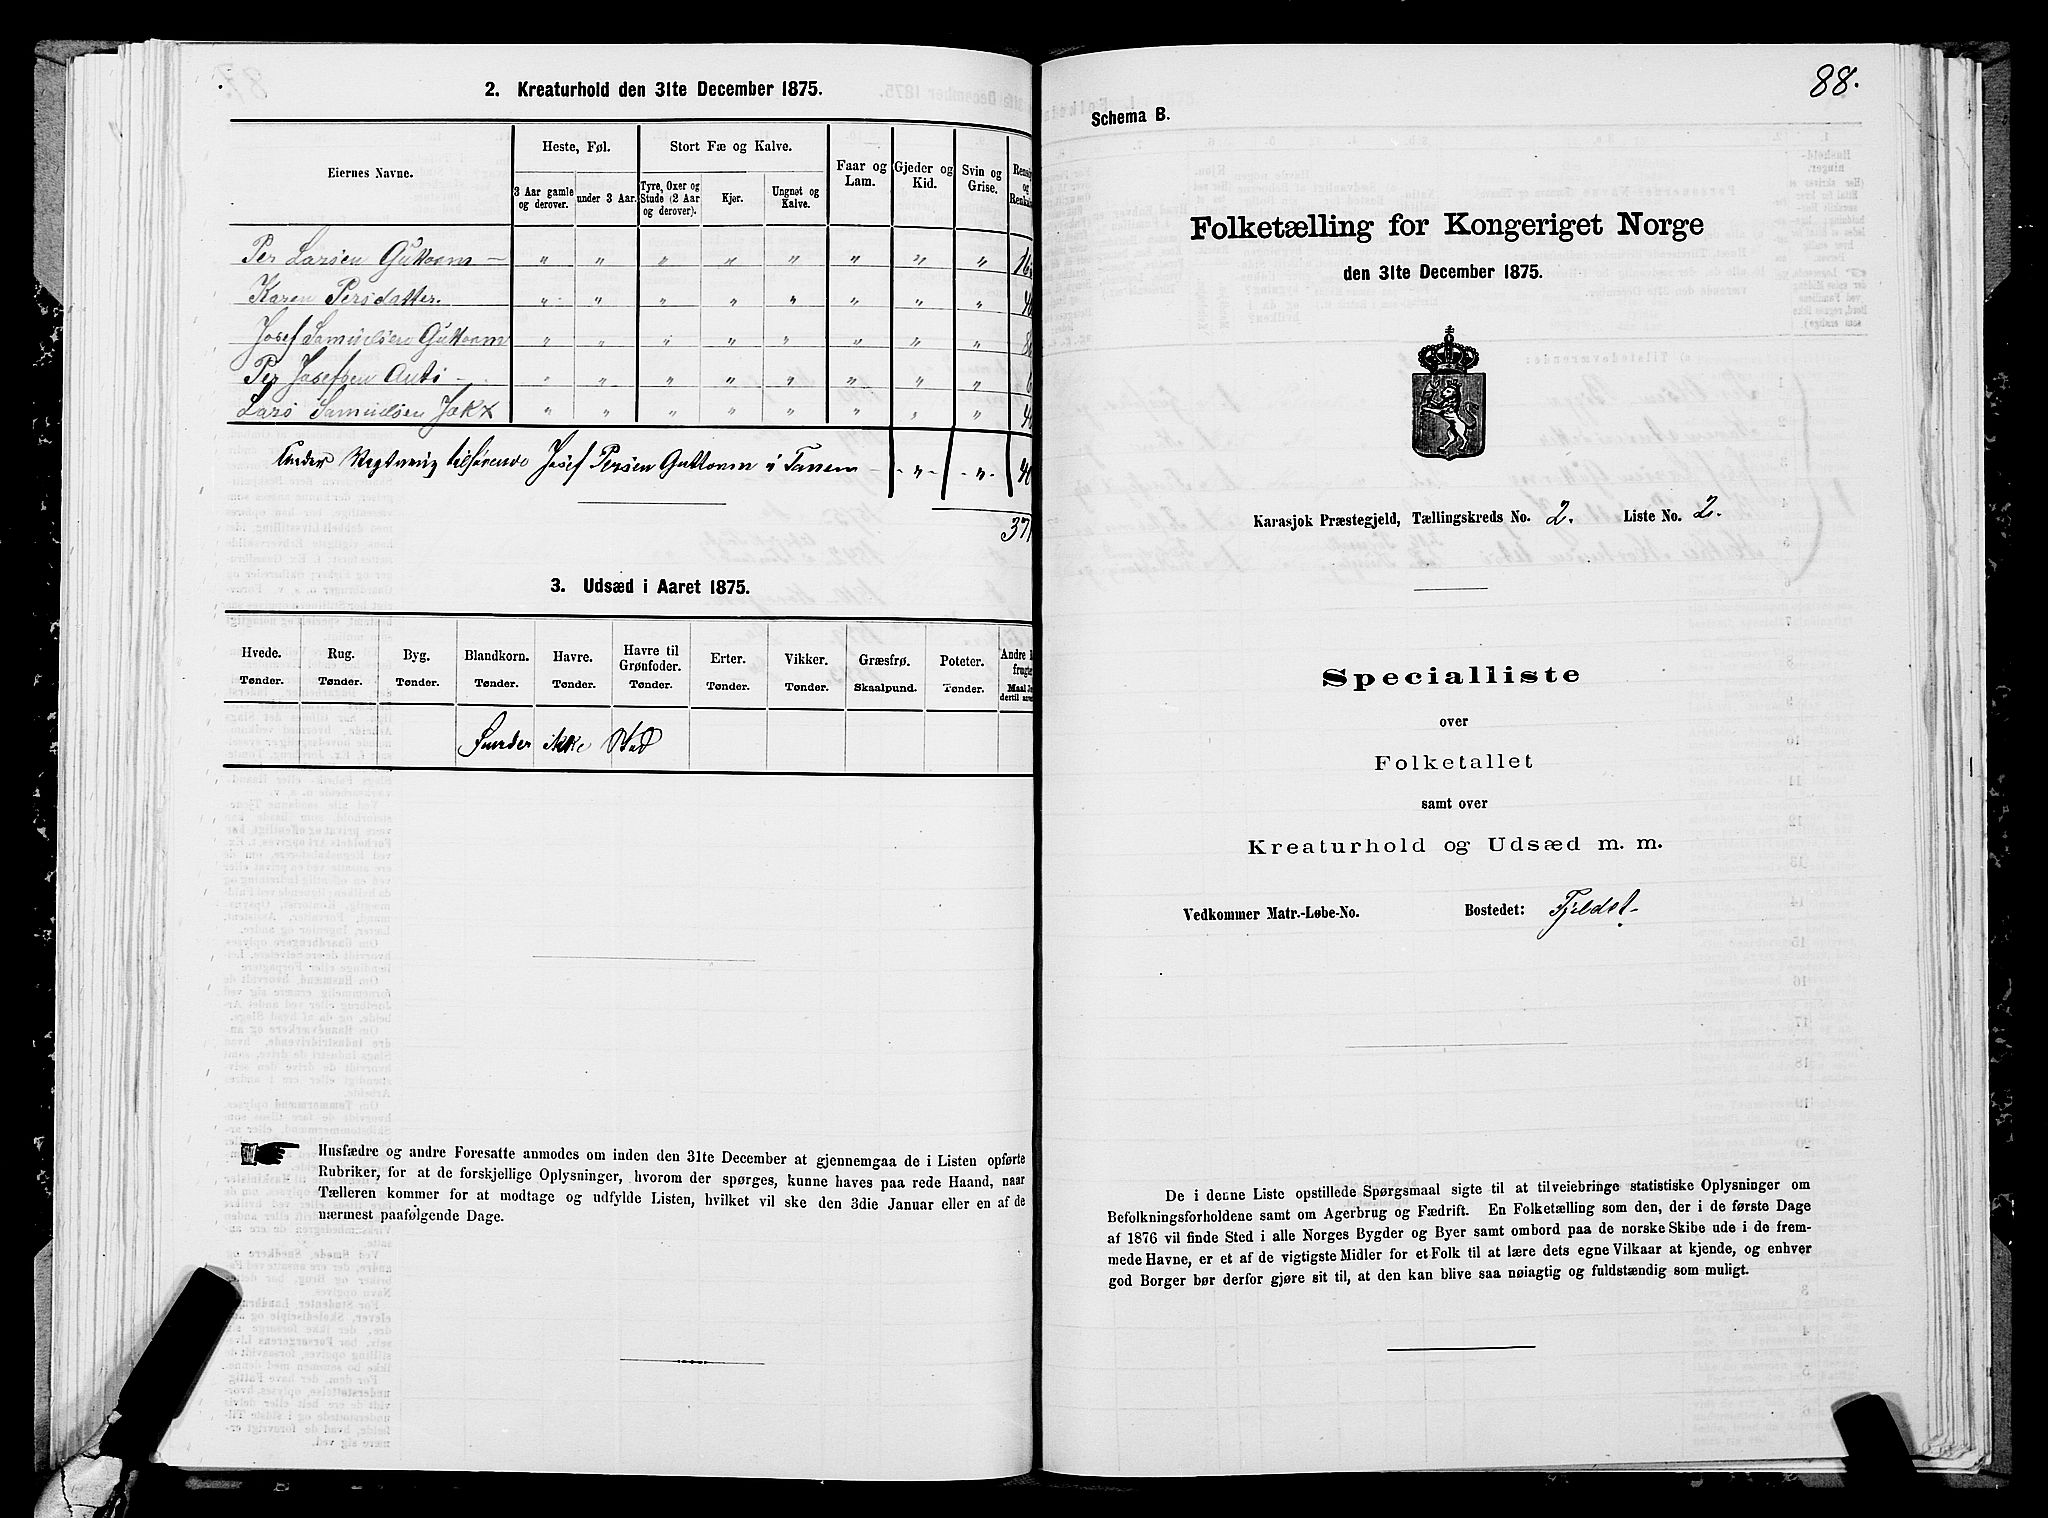 2. Kreaturhold den 31te December 1875.
Eiernes Navne.
Heste, Føl.
Stort Fæ og Kalve.
Faar og Lam.
Gjeder og Kid.
Svin og Grise.
3 Aar gamle og derover.
under 3 Aar.
Tyre, Oxer og Stude (2 Aar og derover).
Kjør.
Ungnøt og Kalve.
Per Larsen Guttorm — " " " " " " " "
Karen Persdatter. " " " " " " " "
Josef Samuelsen Guttorm " " " " " " " "
Per Josefsen Anti — " " " " " " " "
Lars Samuelsen " " " " " " " "
Under tilhørende Josef Persen Guttorm i Tanen - " - - " -
37
3. Udsæd i Aaret 1875.
Hvede. Rug. Byg. Blandkorn. Havre. Havre til Grønfoder. Erter. Vikker. Græsfrø. Poteter.
Tønder. Tønder. Tønder. Tønder. Tønder. Tønder. Tønder. Tønder. Skaalpund. Tønder.
ikke Sted
Husfædre og andre Foresatte anmodes om inden den 31te December at gjennemgaa de i Listen opførte
Rubriker, for at de forskjellige Oplysninger, hvorom der spørges, kunne haves paa rede Haand, naar
Tælleren kommer for at modtage og udfylde Listen, hvilket vil ske den 3die Januar eller en af de
nærmest paafølgende Dage.
88.
Schema B.
Folketælling for Kongeriget Norge
den 31te December 1875.
Karasjok Præstegjeld, Tællingskreds No. 2. Liste No. 2.
Specialliste
over
Folketallet
samt over
Kreaturhold og Udsæd m. m.
Vedkommer Matr.-Løbe-No. Bostedet: Fjeldet.
De i denne Liste opstillede Spørgsmaal sigte til at tilveiebringe statistiske Oplysninger om
Befolkningsforholdene samt om Agerbrug og Fædrift. En Folketælling som den, der i de første Dage
af 1876 vil finde Sted i alle Norges Bygder og Byer samt ombord paa de norske Skibe ude i de frem-
mede Havne, er et af de vigtigste Midler for et Folk til at lære dets egne Vilkaar at kjende, og enhver
god Borger bør derfor gjøre sit til, at den kan blive saa nøiagtig og fuldstændig som muligt.